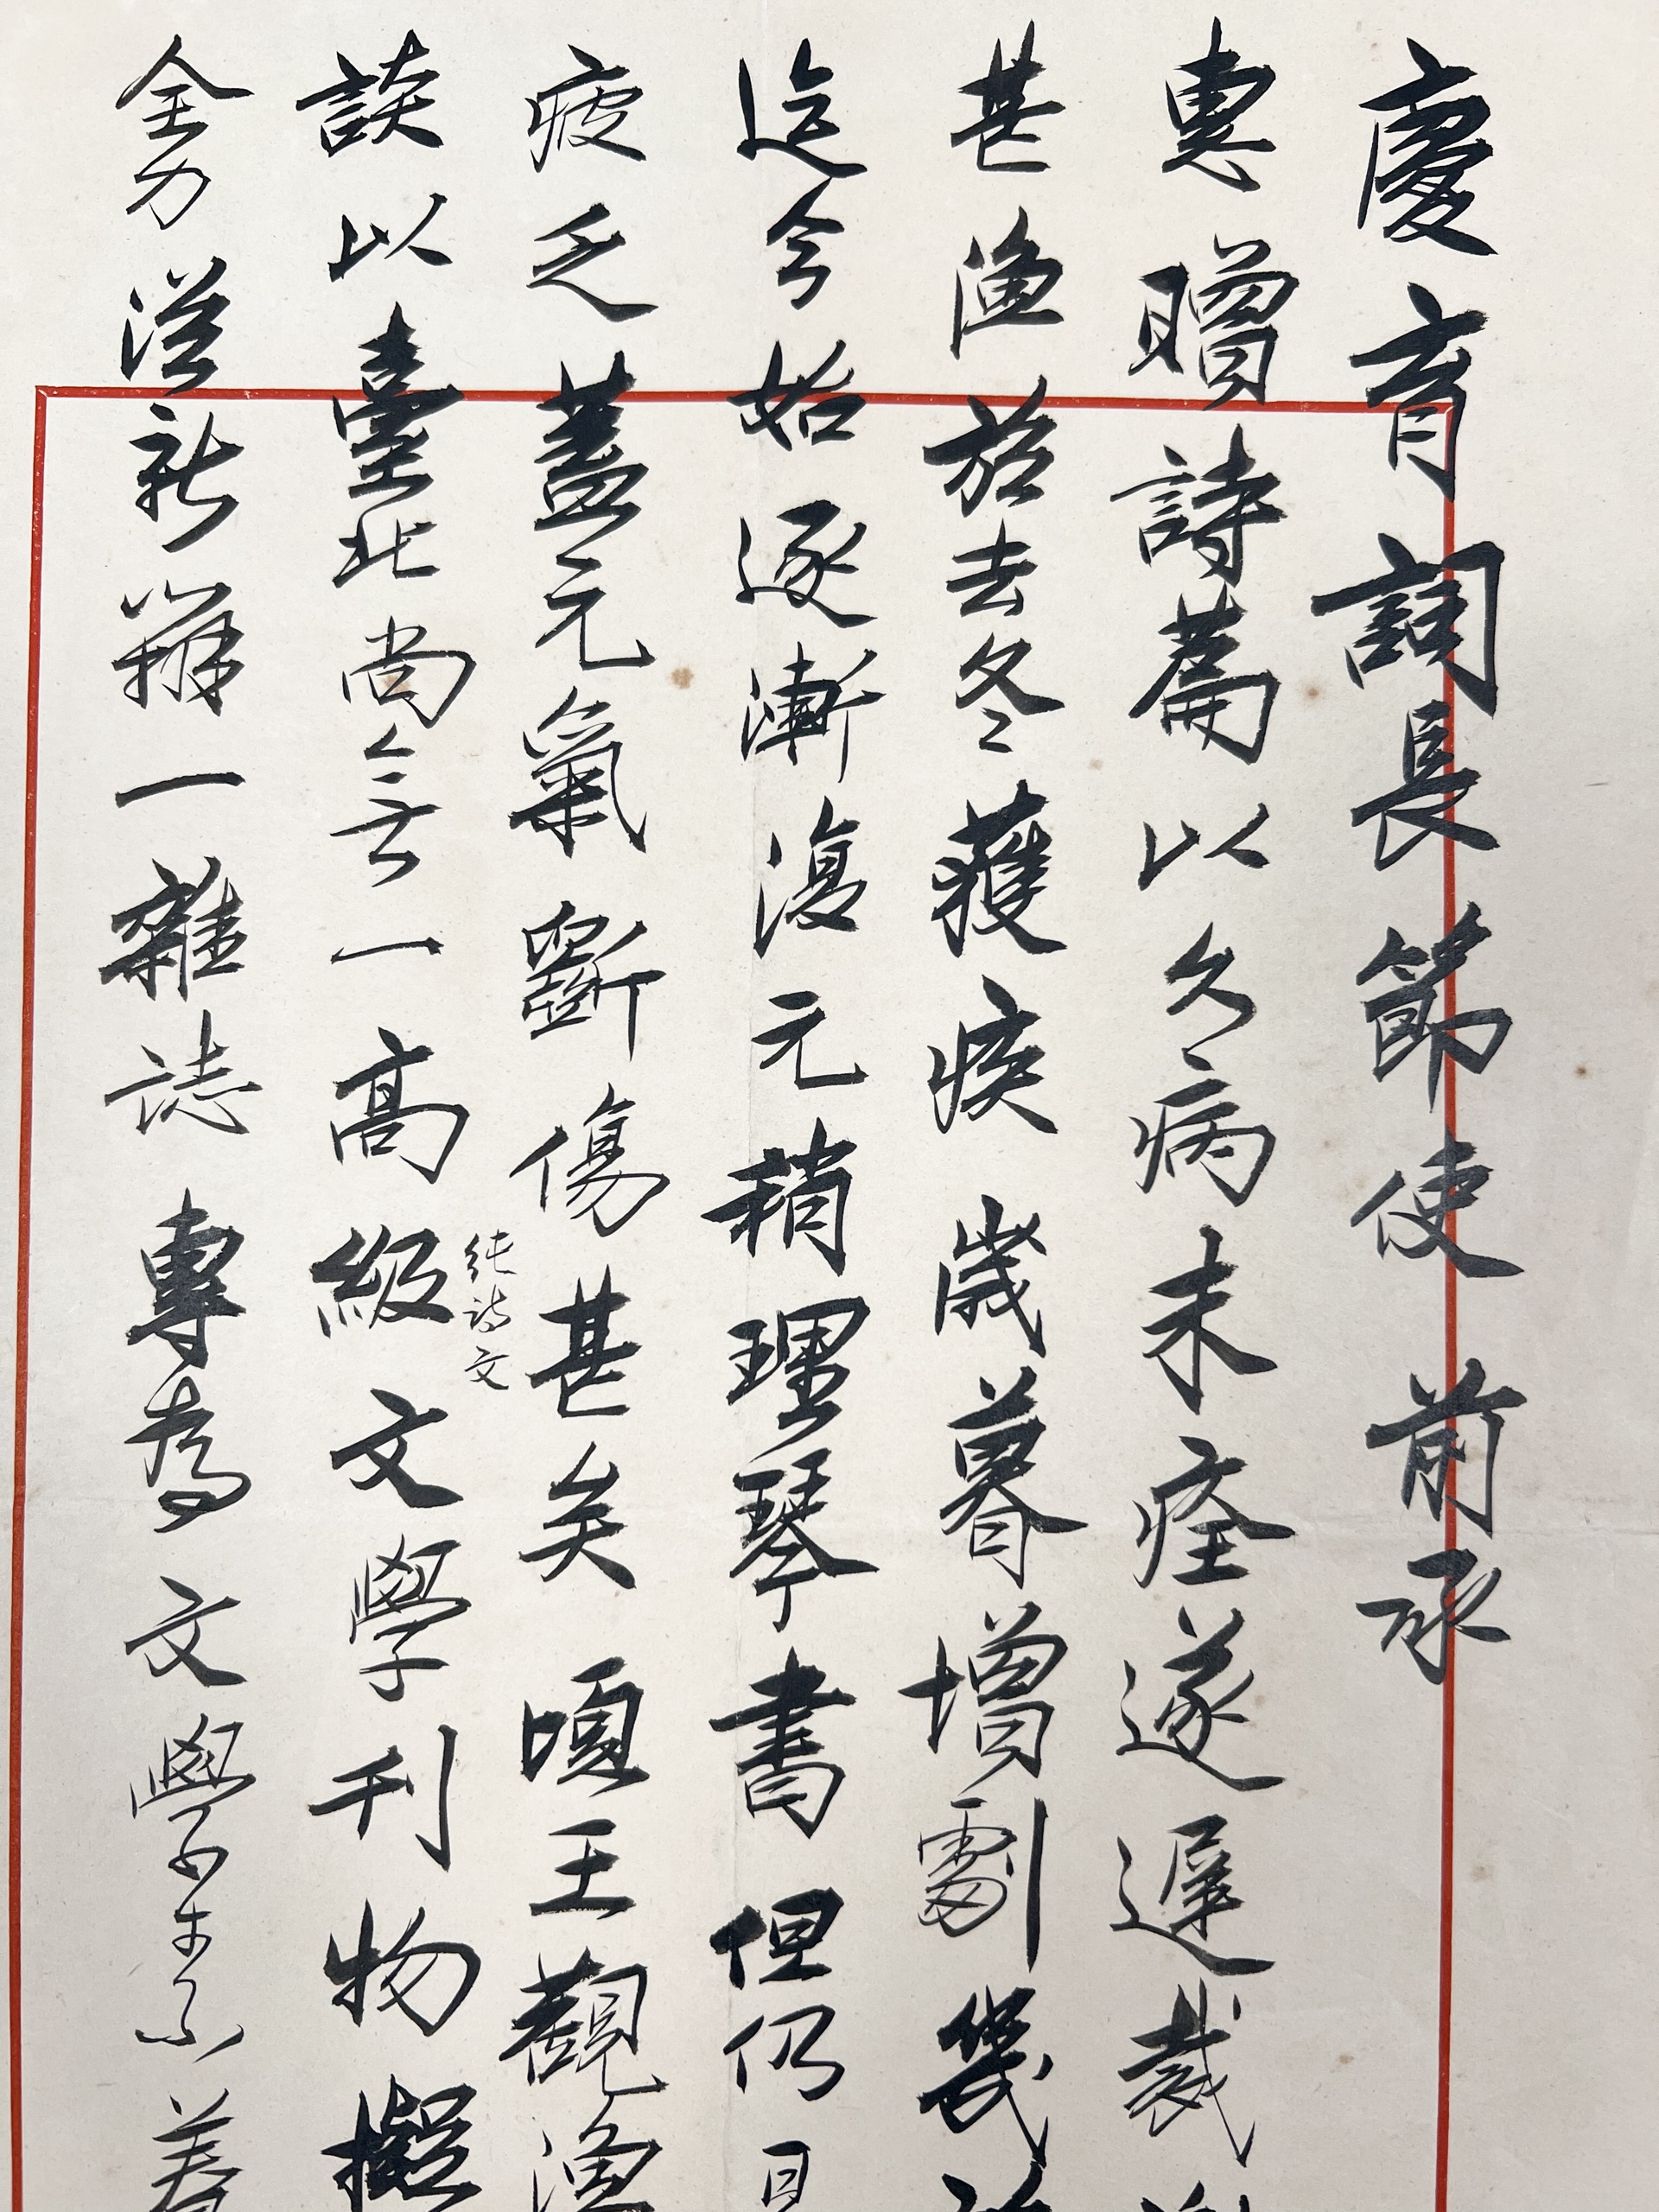 慶育詞長節使前承
惠贈詩篇以久病未痊遂遲裁謝
甚漁於去冬獲疾歲暮增劇幾
迄今始逐漸復元稍理琴書但仍易
疲乏蓋元氣斲傷甚矣頃王觀漁
談以臺北尚無一高級純詩文文學刊物擬
全力從新辦一雜誌專為文學